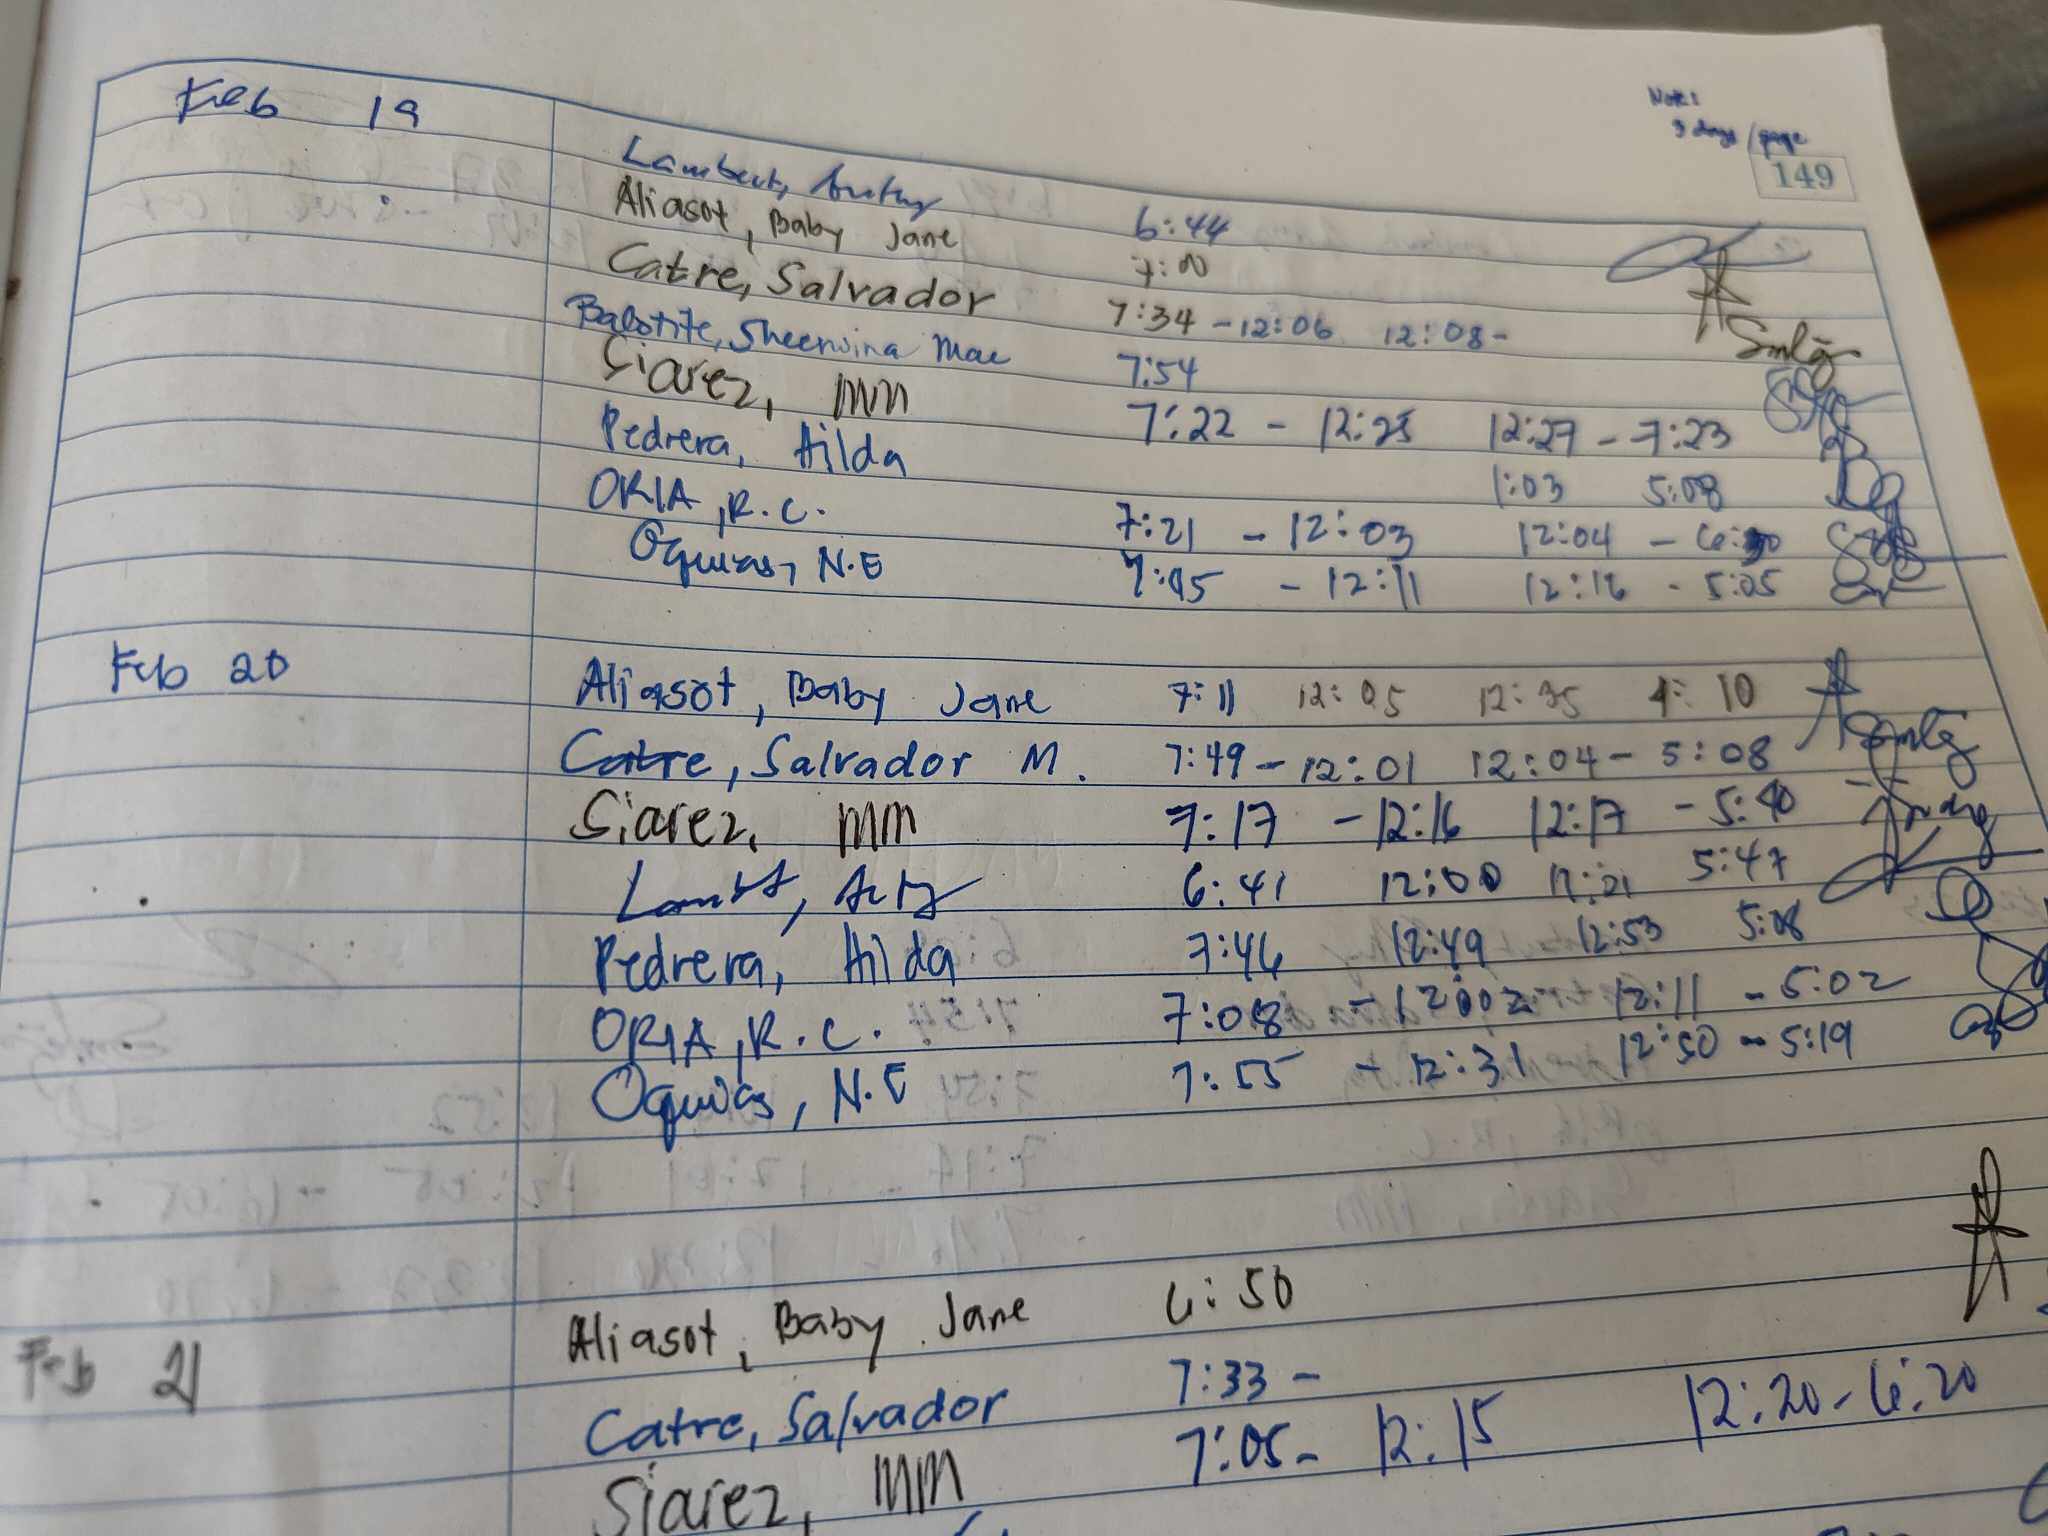 Note:
3 days/page
149
Feb 19
Lambert,
6:44
Aliasot, Baby Jane 7:00
Catre, Salvador 7:34 - 12:06 12:08 -
Balotite, Sheenvina Mae 7:54
Siarez, MM 7:22 - 12:25 12:27 - 7:23
Pedrera, Hilda 1:03 5:08
ORIA, R.C. 7:21 - 12:03 12:04 - 6:30
Oquias, N.E 7:45 - 12:11 12:16 - 5:05
Feb 20 Aliasot, Baby Jane 7:11 12:05 12:35 4:10
Catre, Salvador M. 7:49 - 12:01 12:04 - 5:08
Siarez, MM 7:17 - 12:16 12:17 - 5:40
6:41 12:00 12:21 5:47
Pedrera, Hilda 7:46 12:49 12:53 5:08
ORIA, R.C. 7:08 - 12:02 - 12:11 - 5:02
Oquias, N.E 7:55 - 12:31 12:50 - 5:19
Feb 21 Aliasot, Baby Jane 6:50
Catre, Salvador 7:33 -
Siarez, MM 7:05 - 12:15 12:20 - 6:20